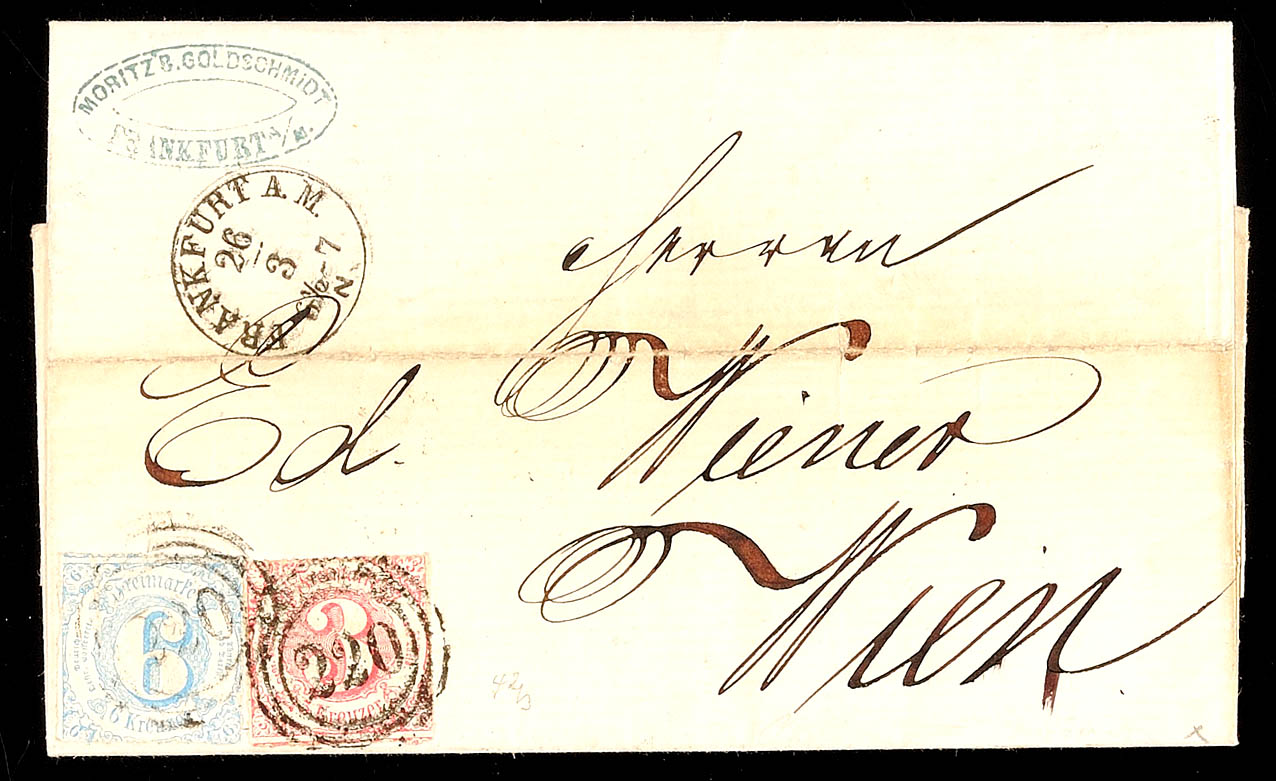 MORITZ B. GOLDSCHMIDT
FRANKFURT A/M.
FRANKFURT A. M.
26
3
7
N
Herren
Ed. Wiener
Wien
Freimarke
6
6 Kreuzer
220
3
Kreuzer
220